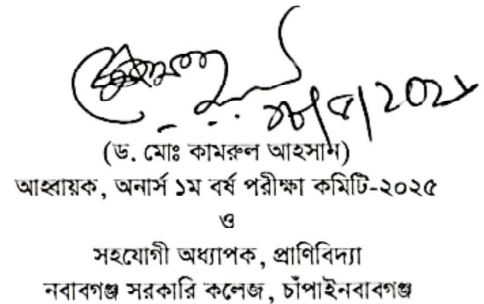 (ড. মোঃ কামরুল আহসান)
আহ্বায়ক, অনার্স ১ম বর্ষ পরীক্ষা কমিটি-২০২৫
ও
সহযোগী অধ্যাপক, প্রাণিবিদ্যা
নবাবগঞ্জ সরকারি কলেজ, চাঁপাইনবাবগঞ্জ